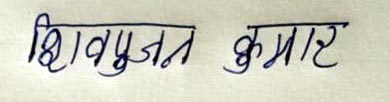 शिवपुजन कुमार